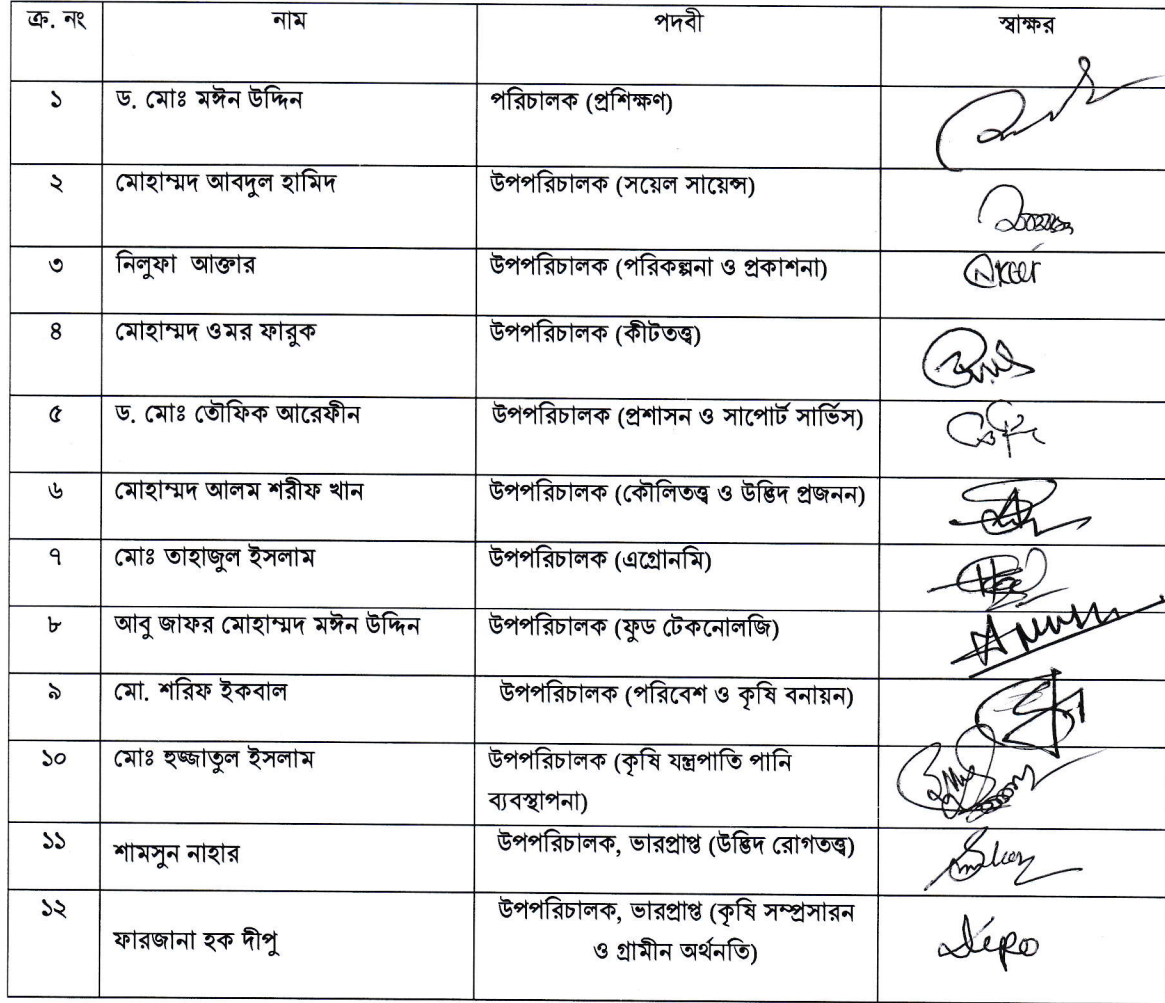 ক্র. নং নাম পদবী স্বাক্ষর
১ ড. মোঃ মঈন উদ্দিন পরিচালক (প্রশিক্ষণ)
২ মোহাম্মদ আবদুল হামিদ উপপরিচালক (সয়েল সায়েন্স)
৩ নিলুফা আক্তার উপপরিচালক (পরিকল্পনা ও প্রকাশনা)
৪ মোহাম্মদ ওমর ফারুক উপপরিচালক (কীটতত্ত্ব)
৫ ড. মোঃ তৌফিক আরেফীন উপপরিচালক (প্রশাসন ও সাপোর্ট সার্ভিস)
৬ মোহাম্মদ আলম শরীফ খান উপপরিচালক (কৌলিতত্ত্ব ও উদ্ভিদ প্রজনন)
৭ মোঃ তাহাজুল ইসলাম উপপরিচালক (এগ্রোনমি)
৮ আবু জাফর মোহাম্মদ মঈন উদ্দিন উপপরিচালক (ফুড টেকনোলজি)
৯ মো. শরিফ ইকবাল উপপরিচালক (পরিবেশ ও কৃষি বনায়ন)
১০ মোঃ হুজ্জাতুল ইসলাম উপপরিচালক (কৃষি যন্ত্রপাতি পানি
ব্যবস্থাপনা)
১১ শামসুন নাহার উপপরিচালক, ভারপ্রাপ্ত (উদ্ভিদ রোগতত্ত্ব)
১২ ফারজানা হক দীপু উপপরিচালক, ভারপ্রাপ্ত (কৃষি সম্প্রসারন
ও গ্রামীন অর্থনতি)